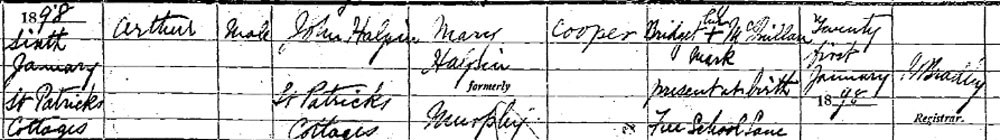 1898 Sixth January St Patricks Cottages
Arthur
Male
John Halpin St Patricks Cottages
Mary Halpin formerly Murphy
Cooper
Bridget + McQuillan her mark present at birth Free School Lane
Twenty first January 1898
Bradley Registrar.